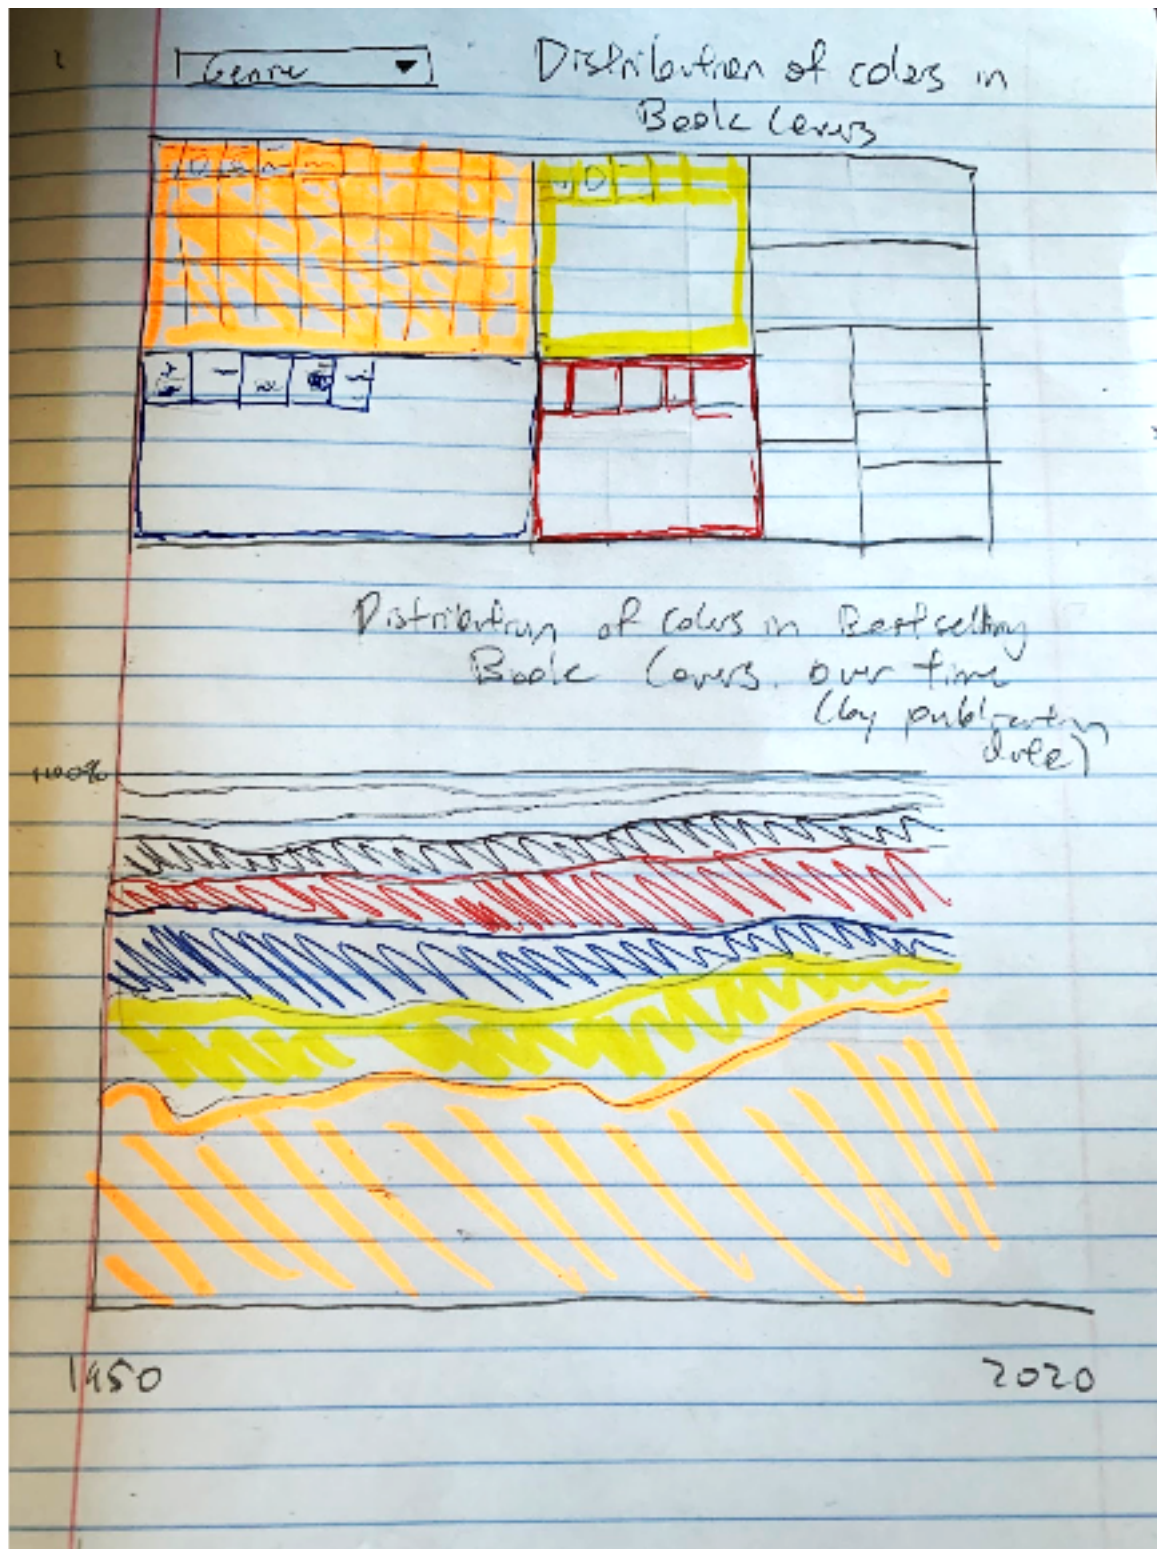 Genre
Distribution of colors in
Book Covers
Distribution of colors in Bestselling
Book Covers. over time
(by publication
date)
100%
1950
2020